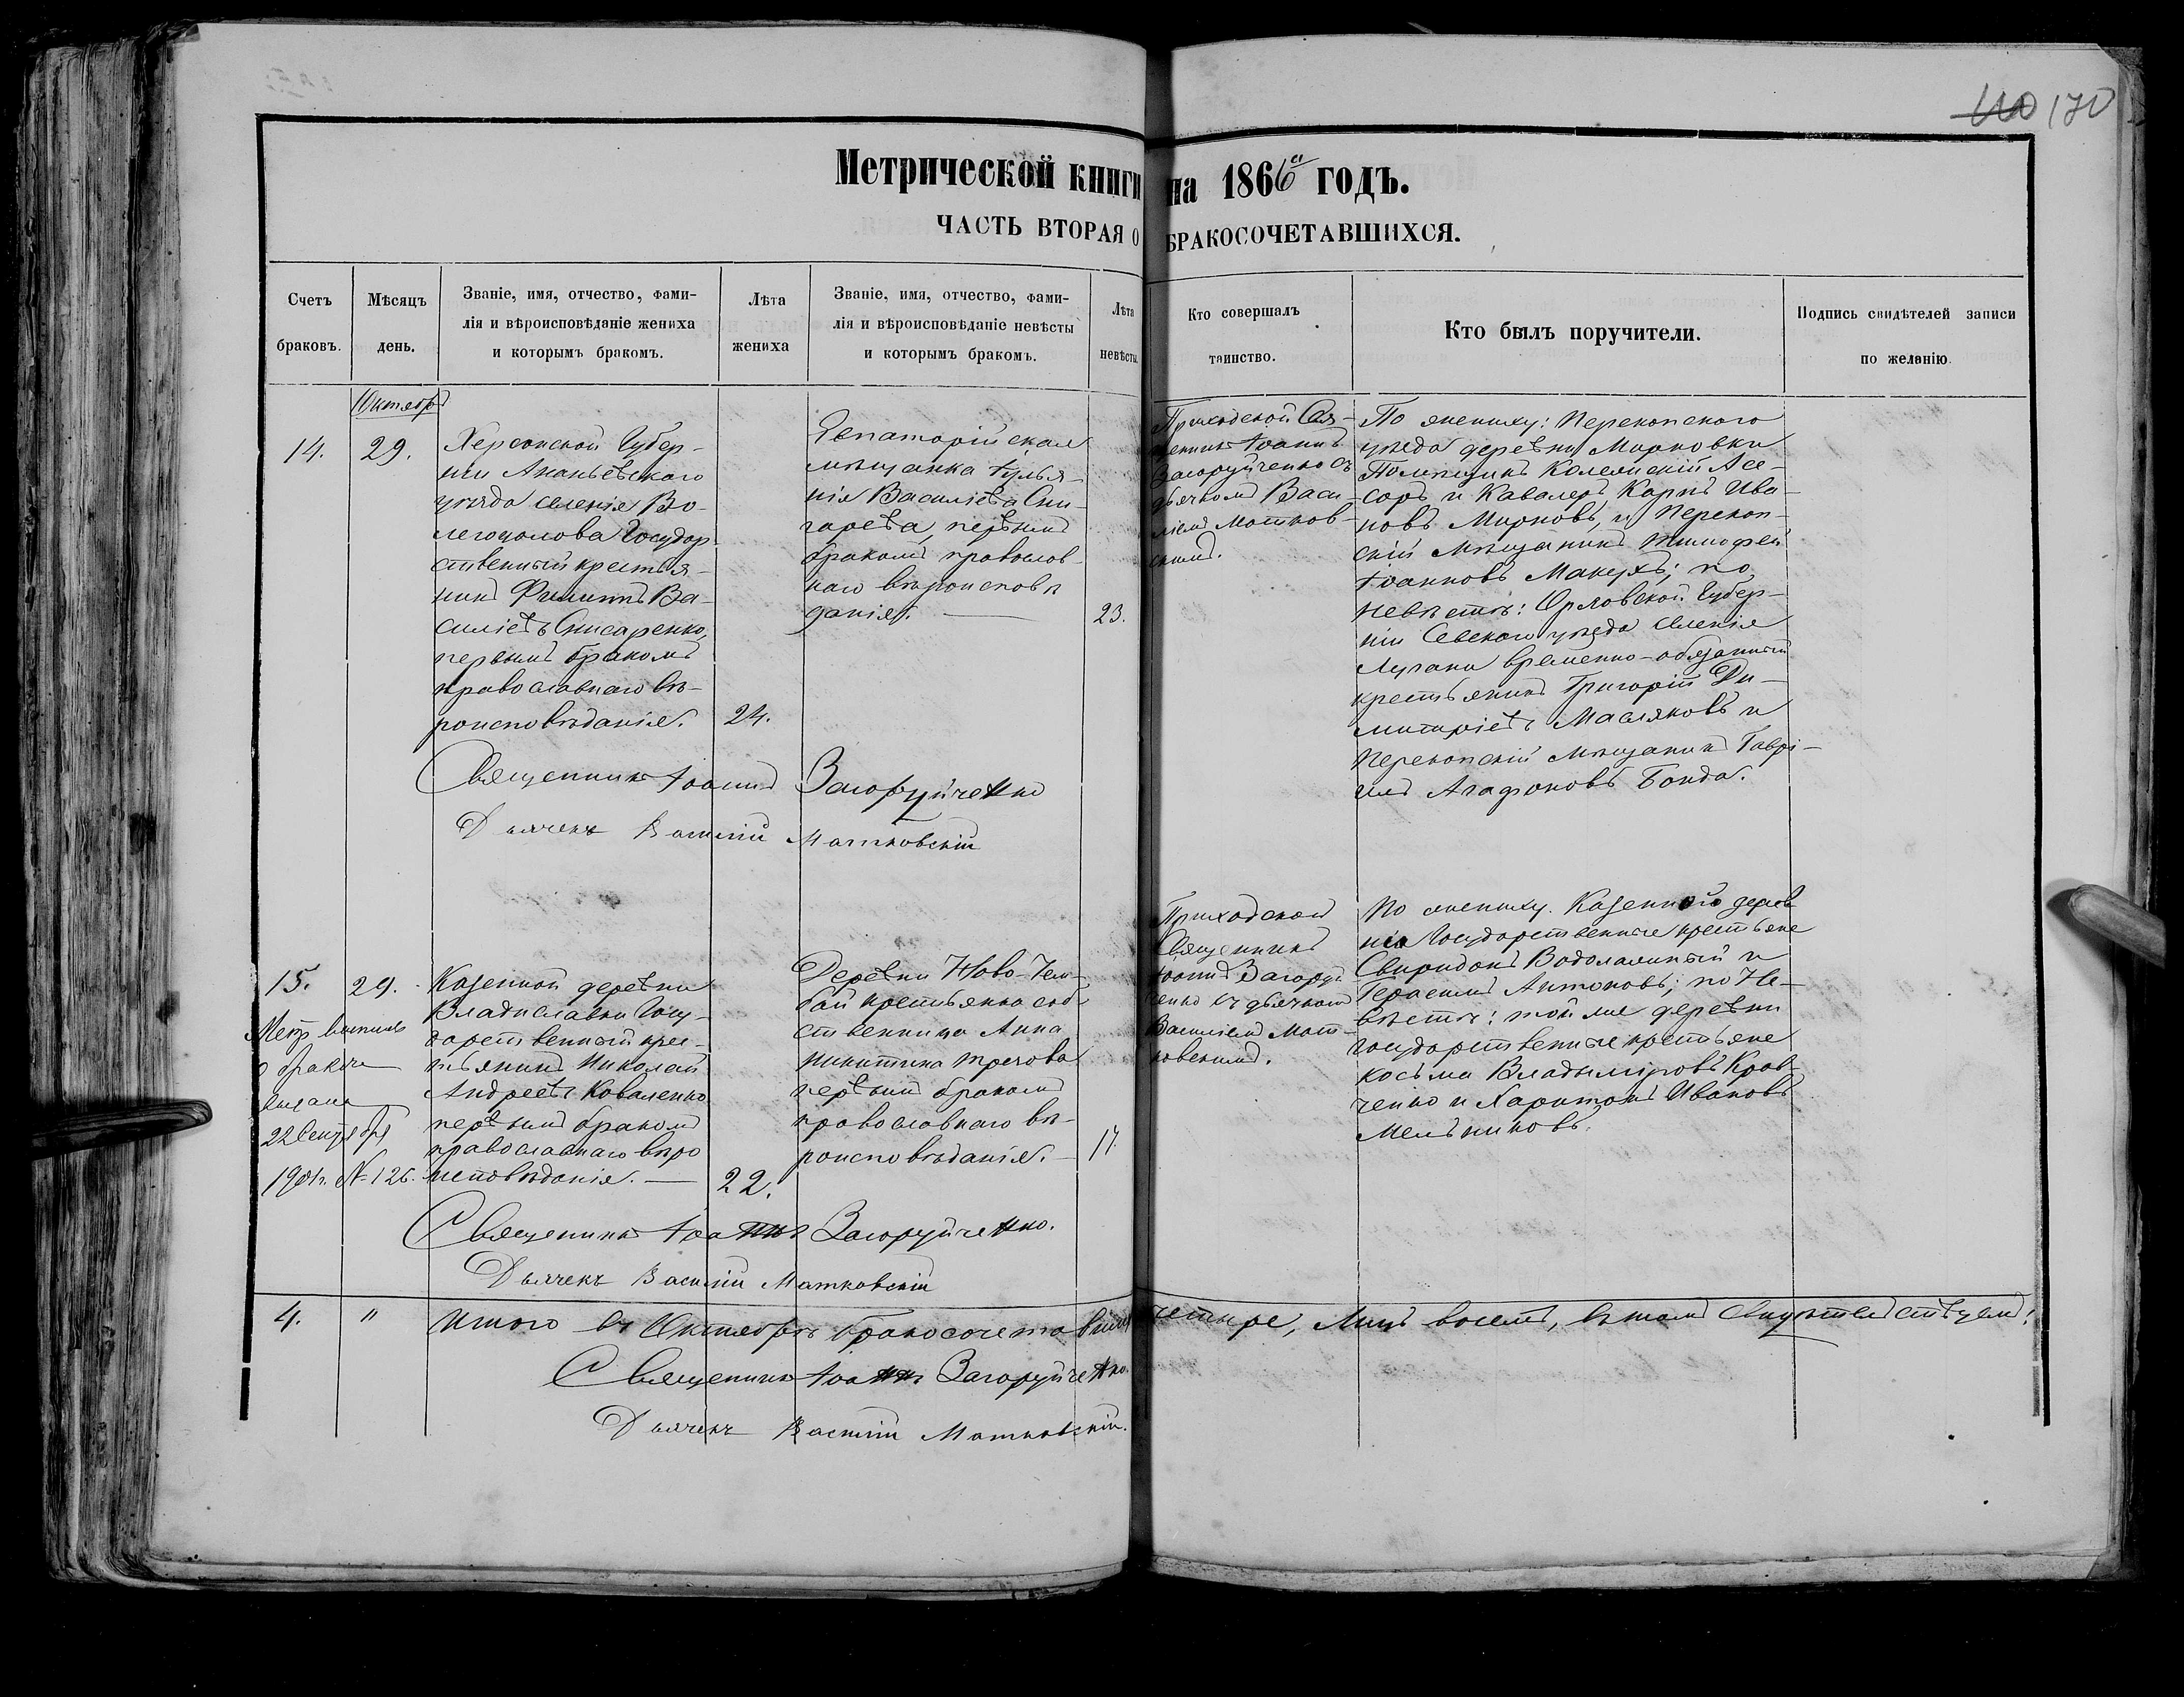 110 170
Метрической книги на 1866й годъ.
ЧАСТЬ ВТОРАЯ О БРАКОСОЧЕТАВШИХСЯ.
Счетъ
браковъ.
Мѣсяцъ
день.
Званіе, имя, отчество, фами-
лія и вѣроисповѣданіе жениха
и которымъ бракомъ.
Лѣта
жениха
Званіе, имя, отчество, фами-
лія и вѣроисповѣданіе невѣсты
и которымъ бракомъ.
Лѣта
невѣсты.
Кто совершалъ
таинство.
Кто былъ поручители.
Подпись свидѣтелей записи
по желанію.
Октябрь
14.
29.
Херсонской Губер-
ніи Ананьевскаго
уѣзда селенія
Государ-
ственный крестья-
нинъ Филиппъ Ва-
сильевъ Снисаренко,
первымъ бракомъ
православнаго вѣ-
роисповѣданія.
24.
Евпаторійская
мѣщанка Іулья-
нія Василіева Сни-
гарева, первымъ
бракомъ православ-
наго вѣроисповѣ
данія.
23.
Приходской Свя-
щенникъ Іоаннъ
Загоруйченко съ
дьячкомъ Васи-
ліемъ Матков-
скимъ.
По жениху: Перекопскаго
уѣзда деревни Марковки
Помѣщикъ Колежскій Асе-
соръ и Кавалеръ Карпъ Ива-
новъ Марковъ, и Перекоп-
скій мѣщанинъ Тимофей
Іоанновъ Макухъ; по
невѣстѣ: Орловской Губер-
ніи Севскаго уѣзда селенія
Лугани временно-обязанный
крестьянинъ Григорій Ди-
митріевъ Масляковъ и
Перекопскій мѣщанинъ Гаврі-
илъ Агафоновъ Бонда.
Священникъ Іоаннъ Загоруйченко
Дьячекъ Василій Матковскій
15.
29.
Метр. выпись
о бракѣ
выдана
22 Сентября
1901г. № 126.
Казенной деревни
Владиславки Госу-
дарственный крес-
тьянинъ Николай
Андреевъ Коваленко
первымъ бракомъ
православнаго вѣро
исповѣданія.
22.
Деревни Ново-
крестьянка соб-
ственница Анна
Никитина
первымъ бракомъ
православнаго вѣ-
роисповѣданія.
17.
Приходской
Священникъ
Іоаннъ Загоруй
ченко съ дьячкомъ
Василіемъ Мат-
ковскимъ.
По жениху. Казенной дерев
ни Государственные крестьяне
Свиридонъ Водолажный и
Герасимъ Антоновъ; по Не-
вѣстѣ: той же деревни
государственные крестьяне
Косьма Владиміровъ Крав-
ченко и Харитонъ Ивановъ
Мельниковъ.
Священникъ Іоаннъ Загоруйченко.
Дьячекъ Василій Матковскій
4. " Итого въ Октябрѣ бракосочетавших четыре, лицъ восемь, въ томъ свидѣтельствуемъ:
Священникъ Іоаннъ Загоруйченко.
Дьячекъ Василій Матковскій.